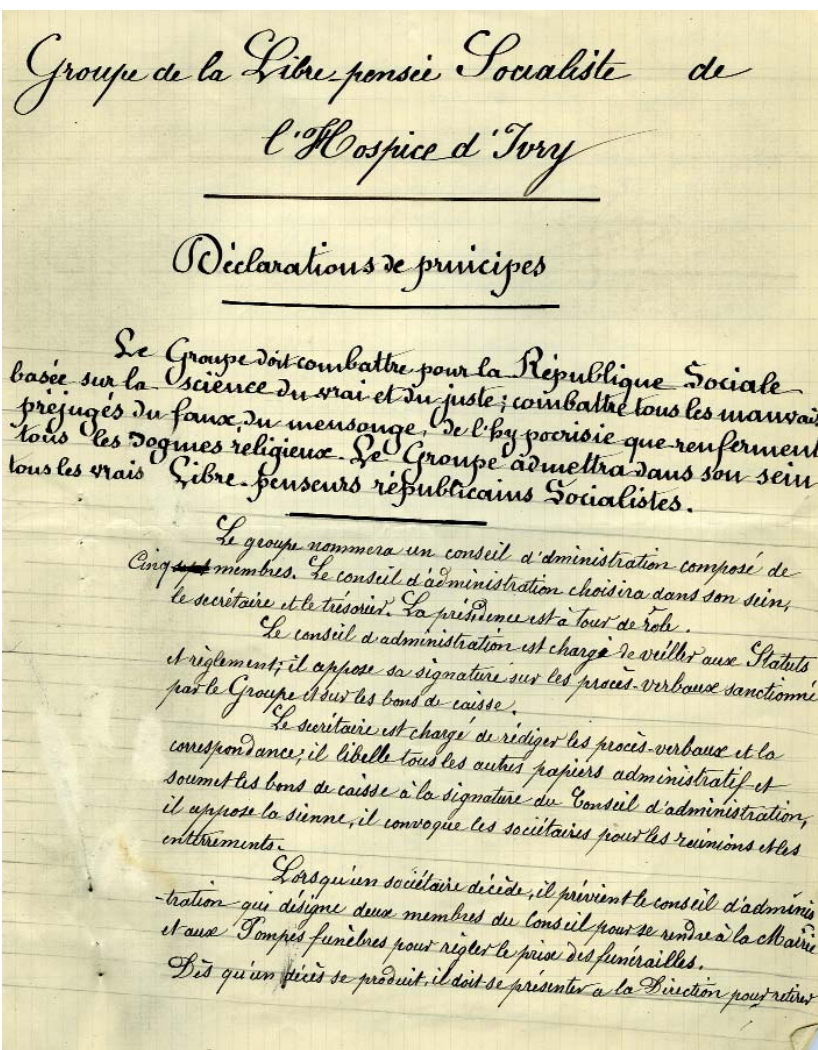 Groupe de la Libre-pensée Socialiste de
l'Hospice d'Ivry
Déclarations de principes
Le Groupe doit combattre pour la République Sociale
basée sur la science du vrai et du juste; combattre tous les mauvais
préjugés du faux, du mensonge, de l'hypocrisie que renferment
tous les dogmes religieux. Le Groupe admettra dans son sein
tous les vrais Libre-penseurs républicains Socialistes.
Le groupe nommera un conseil d'dministration composé de
Cinq sept membres. Le conseil d'administration choisira dans son sein,
le secrétaire et le trésorier. La présidence est à tour de rôle.
Le conseil d'administration est chargé de veiller aux Statuts
et règlement; il appose sa signature sur les procès-verbaux sanctionné
par le Groupe et sur les bons de caisse.
Le secrétaire est chargé de rédiger les procès-verbaux et la
correspondance; il libelle tous les autres papiers administratif et
soumet les bons de caisse à la signature du Conseil d'administration,
il appose la sienne, il convoque les sociétaires pour les reunions et les
enterrements.
Lorsqu'un sociétaire décède, il prévient le conseil d'adminis
-tration qui désigne deux membres du Conseil pour se rendre à la Mairie
et aux Pompes funèbres pour règler le prix des funérailles.
Dès qu'un décès se produit, il doit se présenter a la Direction pour retirer